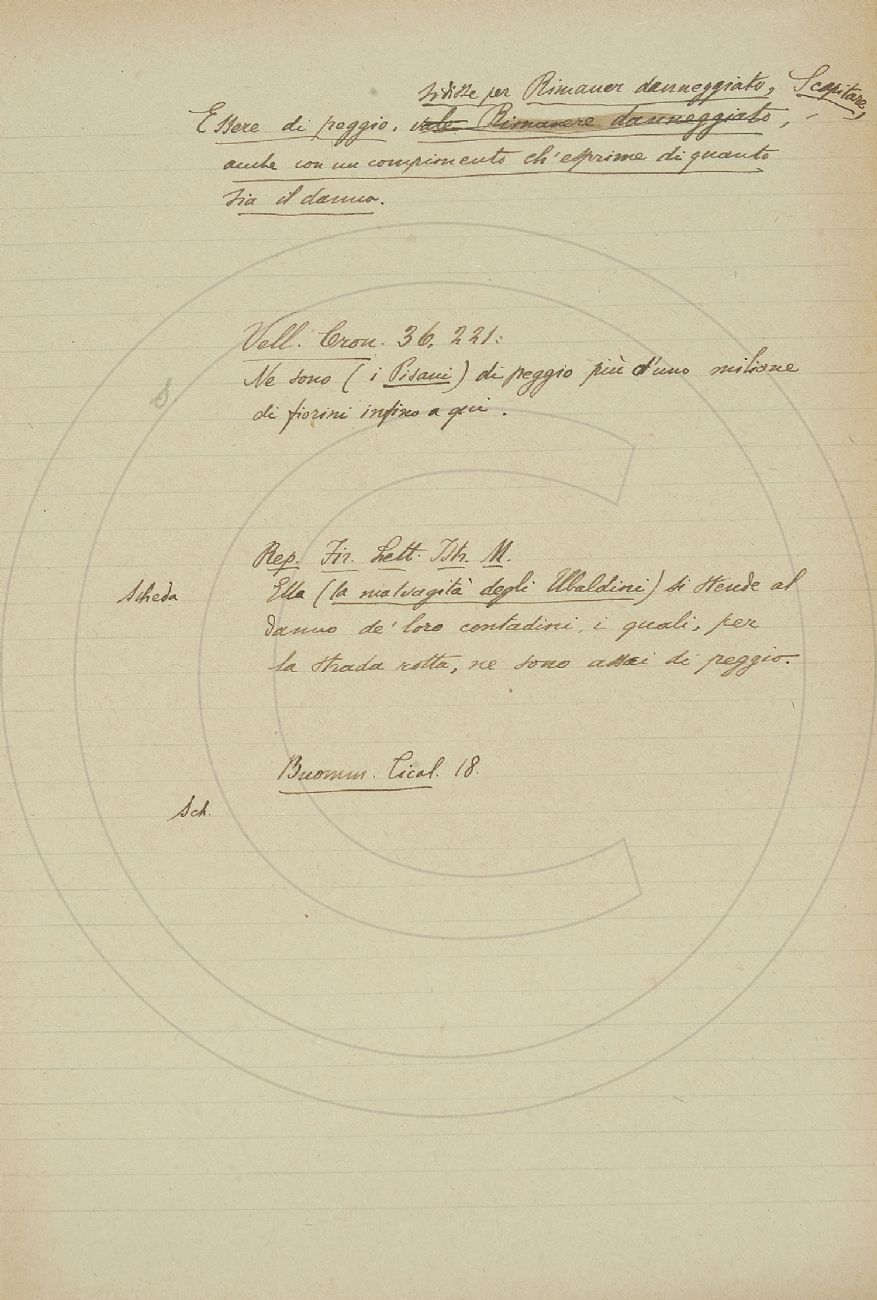 si disse per Rimaner danneggiato, Scapitare,
Essere di peggio, vale Rimanere danneggiato,
anche con un compimento ch'esprime di quanto
sia il danno.
Vell. Cron. 36, 221:
Ne sono (i Pisani) di peggio più d'uno milione
di fiorini infino a qui.
S
Rep. Fir. Lett. Istr. M.
Scheda
Ella (la malvagità degli Ubaldini) si stende al
danno de' loro contadini, i quali, per
la strada rotta, ne sono assai di peggio.
Buomm. Cical. 18.
Sch.